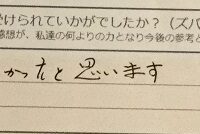 受けられていかがでしたか？（ズバ
感想が、私達の何よりの力となり今後の参考と
かったと思います